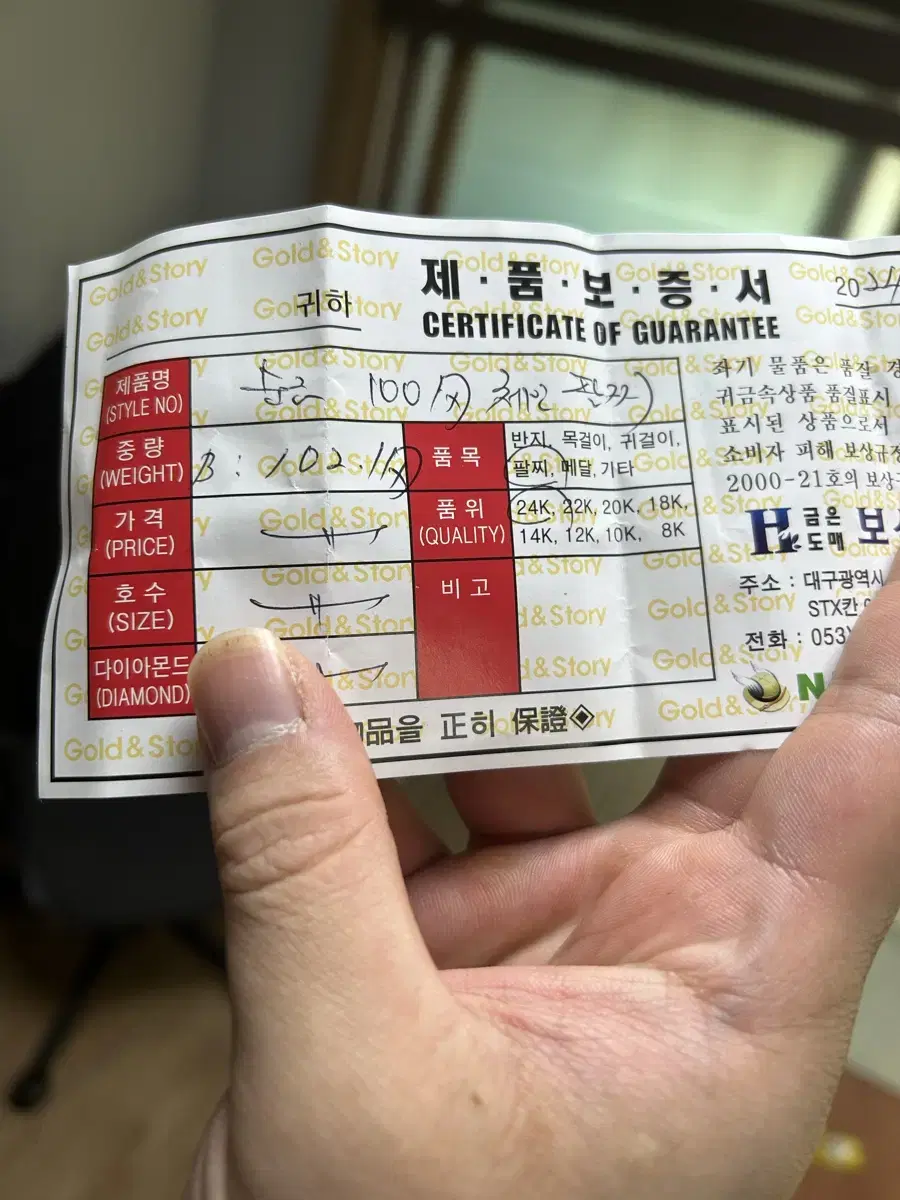 Gold&Story Gold&Story Gold&Story Gold&Story Gold&Story
귀하
제·품·보·증·서
CERTIFICATE OF GUARANTEE
20
제품명
(STYLE NO)
순금 100 체인 팔찌
중량
(WEIGHT)
품목
반지, 목걸이, 귀걸이,
팔찌, 메달, 기타
가격
(PRICE)
품위
(QUALITY)
24K, 22K, 20K, 18K,
14K, 12K, 10K, 8K
호수
(SIZE)
비고
다이아몬드
(DIAMOND)
品을 正히 保證
좌기 물품은 품질
귀금속상품 품질표시
표시된 상품으로서
소비자 피해 보상규정
2000-21호의 보상
금은
도매
주소 : 대구광역시
STX칸
전화 : 053)